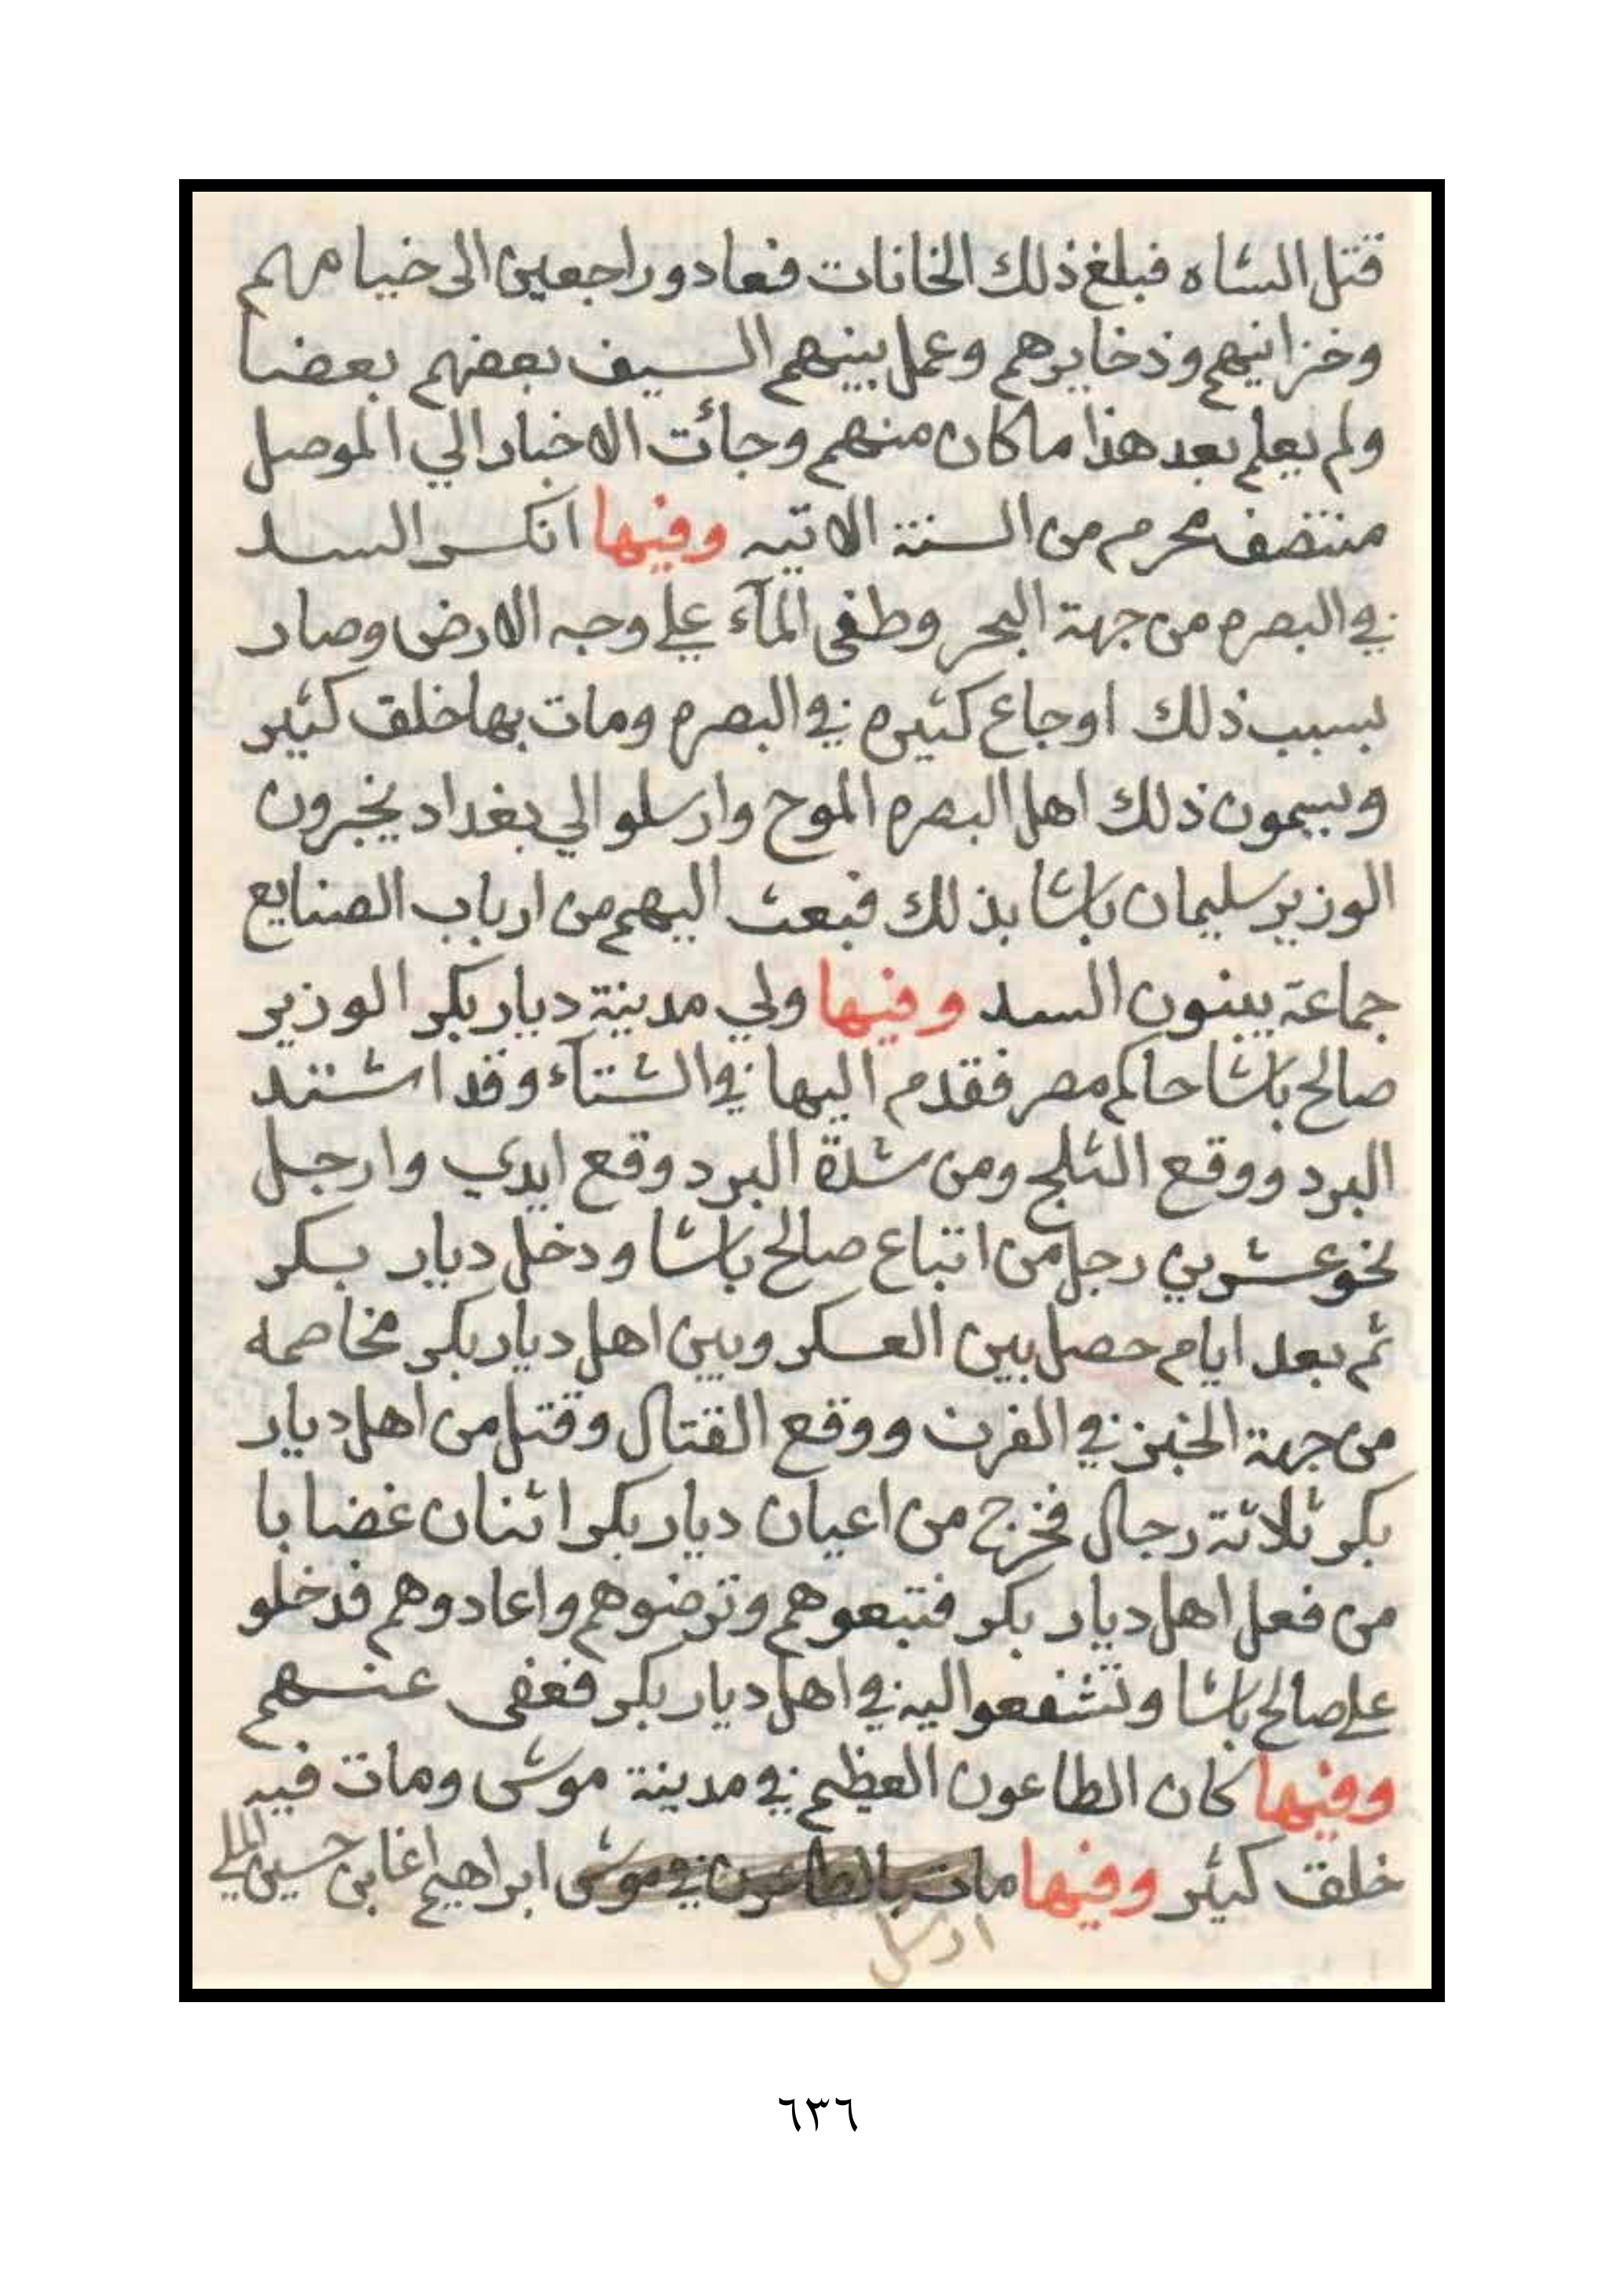 قتل الشاه فبلغ ذلك الخانات فعادو راجعين الى خيامهم
وخزاينهم وذخايرهم وعمل بينهم السيف بعضهم بعضا
ولم يعلم بعد هذا ما كان منهم وجائت الاخبار الي الموصل
منتصف محرم من السنة الاتيه وفيها انكسر السد
في البصره من جهة البحر وطغى المآء علي وجه الارض وصار
بسبب ذلك اوجاع كثيره في البصره ومات بها خلق كثير
ويسمون ذلك اهل البصره الموح وارسلو الي بغداد يخبرون
الوزير سليمان باشا بذلك فبعث اليهم من ارباب الصنايع
جماعة يبنون السد وفيها ولي مدينة ديار بكر الوزير
صالح باشا حاكم مصر فقدم اليها في الشتآء وقد اشتد
البرد ووقع الثلج ومن شدة البرد وقع ايدي وارجل
نحو عشرين رجل من اتباع صالح باشا ودخل ديار بكر
ثم بعد ايام حصل بين العسكر وبين اهل ديار بكر مخاصمه
من جهة الخبز في الفرن ووقع القتال وقتل من اهل ديار
بكر ثلاثة رجال فخرج من اعيان ديار بكر اثنان غضابا
من فعل اهل ديار بكر فتبعوهم وترضوهم واعادوهم فدخلو
علي صالح باشا وتشفعوا اليه في اهل ديار بكر فعفى عنهم
وفيها كان الطاعون العظيم في مدينة موش ومات فيه
خلق كثير وفيها مات بالطاعون في موش ابراهيم اغا بن حسين الملي
ارسل
٦٣٦